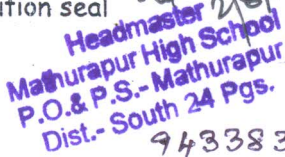 ition seal
Headmaster
Mathurapur High School
P.O.& P.S.- Mathurapur
Dist.- South 24 Pgs.
943383